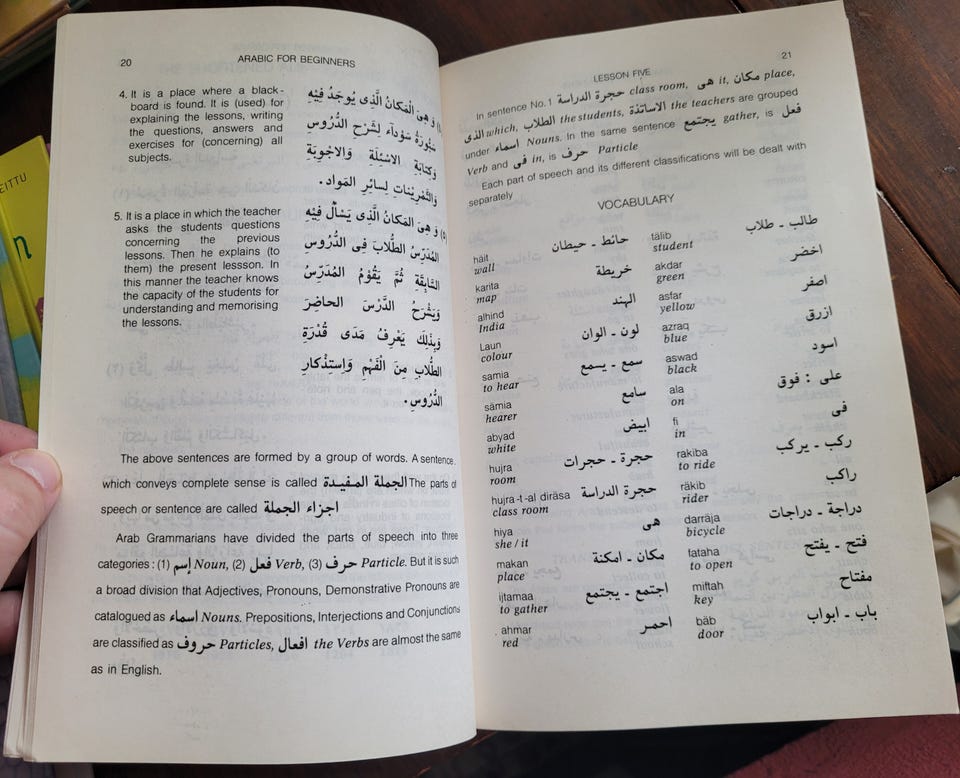 20
ARABIC FOR BEGINNERS
4. It is a place where a black-
board is found. It is (used) for
explaining the lessons, writing
the questions, answers and
exercises for (concerning) all
subjects.
وَ هِىَ الْمَكَانُ الَّذِى يُوجَدُ فِيْهِ
سَبُّوْرَةٌ سَوْدَاءُ لِشَرْحِ الدُّرُوسِ
وَكِتَابَةِ الاسْئِلَةِ وَالاجْوِبَةِ
وَالتَّمْرِيْنَاتِ لِسَائِرِ المَوادِ .
5. It is a place in which the teacher
asks the students questions
concerning the previous
lessons. Then he explains (to
them) the present lessson. In
this manner the teacher knows
the capacity of the students for
understanding and memorising
the lessons.
(٥) وَ هِىَ المَكَانُ الَّذِى يَسْأَلُ فِيْهِ
المُدَرِّسُ الطُّلَّابَ فِى الدُّرُوسِ
السَّابِقَةِ ثُمَّ يَقُوْمُ المُدَرِّسُ
وَيَشْرَحُ الدَّرْسَ الحَاضِرَ
وَبِذٰلِكَ يَعْرِفُ مَدَى قُدْرَةِ
الطُّلَّابِ مِنَ الْفَهْمِ وَاسْتِذْكَارِ
الدُّرُوسِ .
The above sentences are formed by a group of words. A sentence
which conveys complete sense is called الجملة المفيدة The parts of
speech or sentence are called اجزاء الجملة
Arab Grammarians have divided the parts of speech into three
categories : (1) إسم Noun, (2) فعل Verb, (3) حرف Particle. But it is such
a broad division that Adjectives, Pronouns, Demonstrative Pronouns are
catalogued as اسماء Nouns. Prepositions, Interjections and Conjunctions
are classified as حروف Particles, افعال the Verbs are almost the same
as in English.
LESSON FIVE
21
In sentence No. 1 حجرة الدراسة class room, هى it, مكان place,
الذى which, الطلاب the students, الاساتذة the teachers are grouped
under اسماء Nouns. In the same sentence يجتمع gather, is فعل
Verb and فى in, is حرف Particle
Each part of speech and its different classifications will be dealt with
separately
VOCABULARY
häit حائط ـ حيطان
wall
karita خريطة
map
alhind الهند
India
Laun لون ـ الوان
colour
samia سمع ـ يسمع
to hear
sämia سامع
hearer
abyad ابيض
white
hujra حجرة ـ حجرات
room
hujra-t-al diräsa حجرة الدراسة
class room
hiya هى
she / it
makan مكان ـ امكنة
place
ijtamaa اجتمع ـ يجتمع
to gather
ahmar احمر
red
tälib طالب ـ طلاب
student
akdar اخضر
green
asfar اصفر
yellow
azraq ازرق
blue
aswad اسود
black
ala على : فوق
on
fi فى
in
rakiba ركب ـ يركب
to ride
räkib راكب
rider
darräja دراجة ـ دراجات
bicycle
fataha فتح ـ يفتح
to open
miftah مفتاح
key
bäb باب ـ ابواب
door